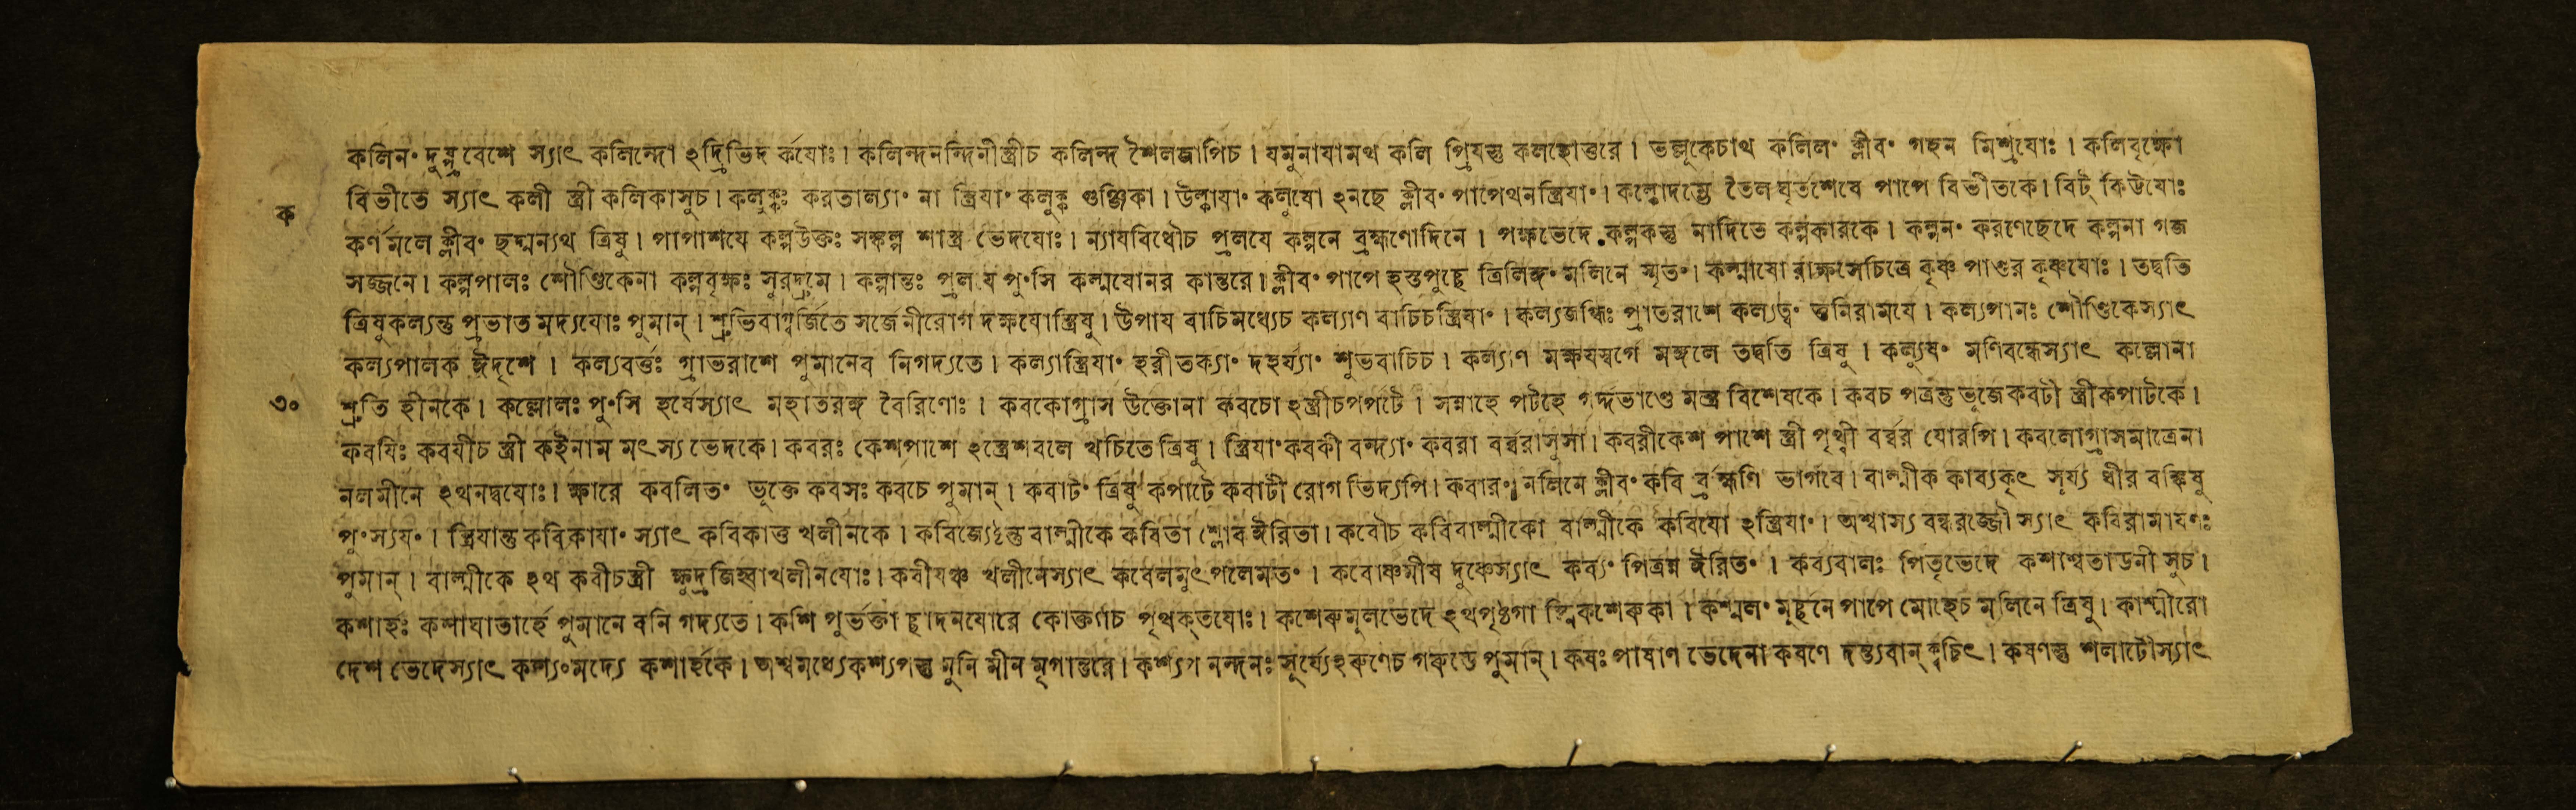 কলিন॰ দুষ্প্রবেশে স্যাৎ কলিন্দো ঽদ্রিভিদ র্কযোঃ। কলিন্দনন্দিনীস্ত্রীচ কলিন্দ শৈলজাপিচ। যমুনাযামথ কলি প্রিযস্তু কলহোত্তরে। ভল্লূকেচাথ কলিল॰ ক্লীব॰ গহন মিশ্রযোঃ। কলিবৃক্ষো
বিভীতে স্যাৎ কলী স্ত্রী কলিকাসুচ। করতাল্যা॰ না স্ত্রিযা॰ গুঞ্জিকা। উল্কাযা॰ কলুষো ঽনচ্ছে ক্লীব॰ পাপেথনস্ত্রিযা॰। কল্কোদম্ভে তৈল ঘৃতশেষে পাপে বিভীতকে। বিট্ কিট্টযোঃ
ক
কর্ণমলে ক্লীব॰ ত্রিষু। পাপাশযে কল্পউক্তঃ সঙ্কল্প শাস্ত্র ভেদযোঃ। ন্যাযবিধৌচ প্রলযে কল্পনে ব্রহ্মণোদিনে। পক্ষভেদে কল্পকস্তু নাদিতে কল্পকারকে। কল্পন॰ করণেছেদে কল্পনা গজ
সজ্জনে। কল্পপালঃ শৌণ্ডিকেনা কল্পবৃক্ষঃ সুরদ্রুমে। কল্পান্তঃ প্রল য পু॰সি কল্মষোনর কান্তরে। ক্লীব॰ পাপে হস্তপুচ্ছে ত্রিলিঙ্গ॰ মলিনে স্মৃত॰। কল্মাষো রাক্ষসেচিত্রে কৃষ্ণ পাণ্ডর কৃষ্ণযোঃ। তদ্বতি
ত্রিষুকল্যন্তু প্রভাত মদ্যযোঃ পুমান্। শ্রুতিবাগ্বর্জিতে সর্জেনীরোগ দক্ষযোস্ত্রিষু। উপায বাচিমধ্যেচ কল্যাণ বাচিচস্ত্রিযা॰। কল্যজগ্ধিঃ প্রাতরাশে কল্যত্ব॰ ত্বনিরামযে। কল্যপানঃ শৌণ্ডিকেস্যাৎ
কল্যপালক ঈদৃশে। কল্যবর্ত্তঃ প্রাতরাশে পুমানেব নিগদ্যতে। কল্যাস্ত্রিযা॰ হরীতক্যা॰ শুভবাচিচ। কল্যাণ মক্ষযস্বর্গে মঙ্গলে তদ্বতি ত্রিষু। কল্যুষ॰ মণিবন্ধেস্যাৎ কল্লোনা
৩০
শ্রুতি হীনকে। কল্লোলঃ পু॰সি হর্ষেস্যাৎ মহাতরঙ্গ বৈরিণোঃ। কবকোগ্রাস উক্তোনা কবচো ঽস্ত্রীচপর্পটে। সন্নাহে পটহে গর্দ্দভাণ্ডে মন্ত্র বিশেষকে। কবচ পত্রন্তু ভূজে কবটী স্ত্রীকপাটকে।
কবযিঃ কবযীচ স্ত্রী কইনাম মৎস্য ভেদকে। কবরঃ কেশপাশে ঽস্ত্রেশবলে খচিতেত্রিষু। স্ত্রিযা॰কবকী বন্দ্যা॰ কবরা বর্ব্বরাসুসা। কবরীকেশ পাশে স্ত্রী পৃথ্বী বর্ব্বর যোরপি। কবলোগ্রাসমাত্রেনা
নলমীনে ঽথনদ্বযোঃ। ক্ষারে কবলিত॰ ভুক্তে কবসঃ কবচে পুমান্। কবাট॰ ত্রিষু কপাটে কবাটী রোগ ভিদ্যপি। কবার॰ নলিনে ক্লীব॰ কবি র্ব্রহ্মণি ভার্গবে। বাল্মীক কাব্যকৃৎ সূর্য্য ধীর বহ্নিষু
পু॰স্যয॰। স্ত্রিযান্তু কবিকাযা॰ স্যাৎ কবিকাতু খলীনকে। কবিজ্যেষ্ঠস্তু বাল্মীকে কবিতা শ্লোব ঈরিতা। কবৌচ কবিবাল্মীকো বাল্মীকে কবিযো ঽস্ত্রিযা॰। অশ্বাস্য বন্ধরজ্জৌ স্যাৎ কবিরামাযণঃ
পুমান্। বাল্মীকে ঽথ কবীচস্ত্রী ক্ষুদ্রজিহ্বাখলীনযোঃ। কবীযঞ্চ খলীনেস্যাৎ কবেলমুৎপলেমত॰। কবোষ্ণমীষ দুষ্ণেস্যাৎ কব্য॰ পিত্রন্ন ঈরিত॰। কব্যবালঃ পিতৃভেদে কশাশ্বতাডনী সুচ।
কশার্হঃ কশাঘাতার্হে পুমানে বনি গদ্যতে। কশি পুর্ভক্তা চ্ছাদনযোরে কোক্তাচ পৃথক্তযোঃ। কশেরুমূলভেদে ঽথপৃষ্ঠগা স্থ্নিকশেরুকা। কশ্মল॰ মূর্ছনে পাপে মোহেচ মলিনে ত্রিষু। কাশ্মীরো
দেশ ভেদেস্যাৎ কশ্য॰মদ্যে কশার্হকে। অশ্বমধ্যেকশ্যপস্তু মুনি মীন মৃগান্তরে। কশ্যপ নন্দনঃ সূর্য্যেঽরুণেচ গরুডে পুমান্। কষঃ পাষাণ ভেদেনা কষণে দন্ত্যবান্ ক্বচিৎ। কষণস্তু শলাটৌস্যাৎ